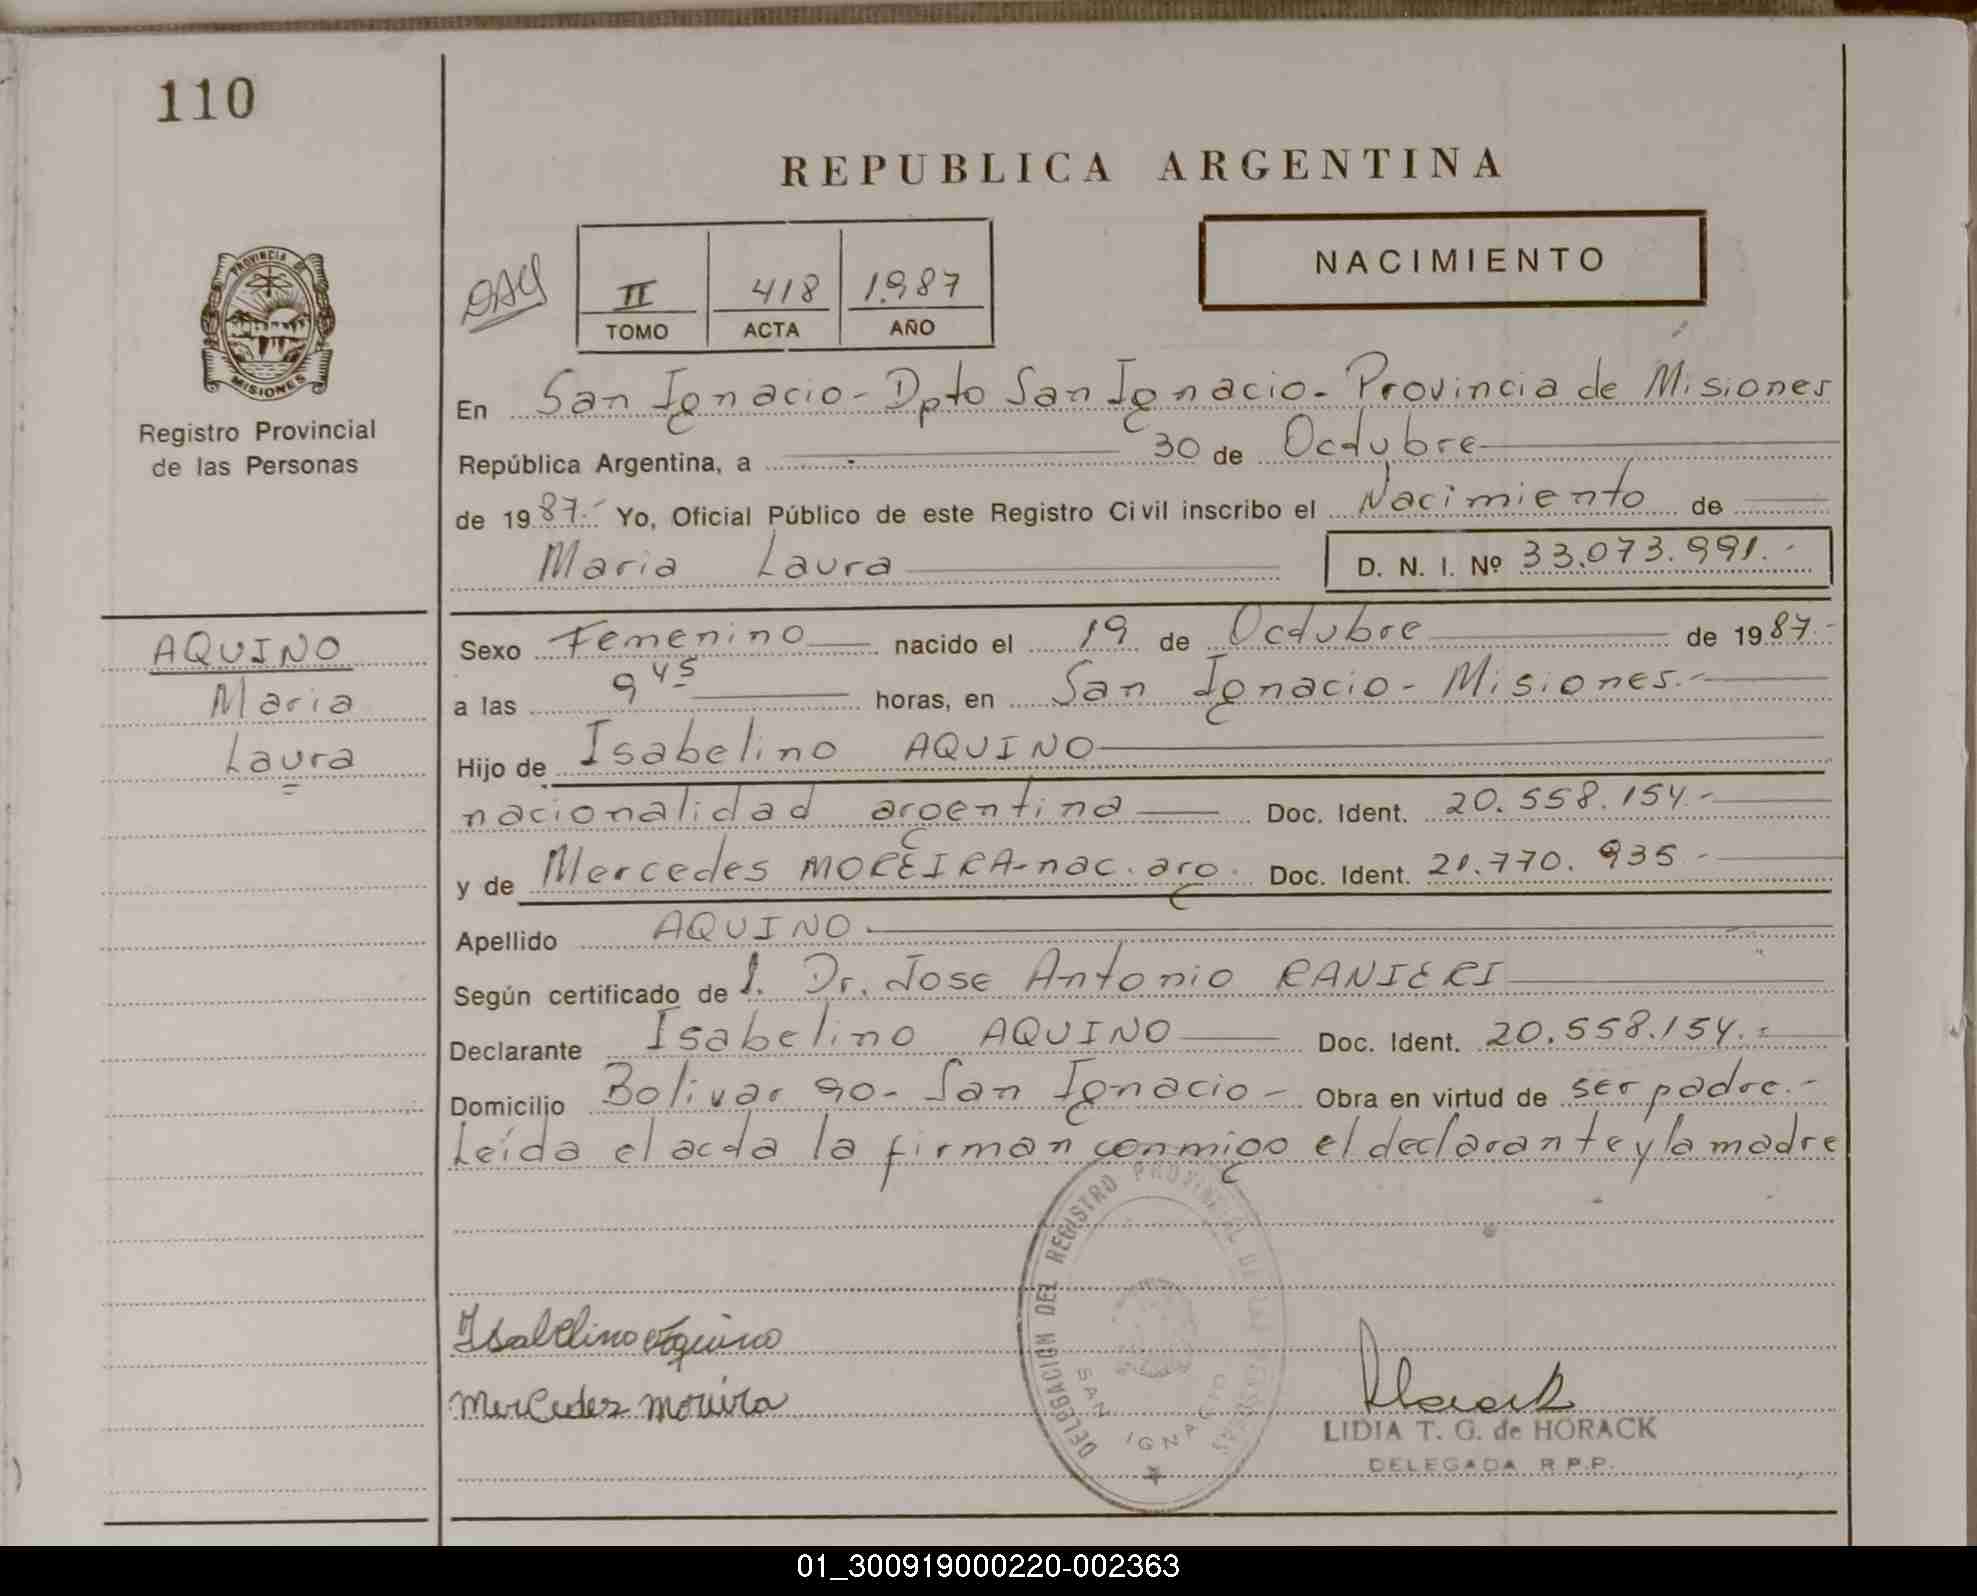 110
REPUBLICA ARGENTINA
NACIMIENTO
II 418 1.987
TOMO ACTA AÑO
PROVINCIA DE
MISIONES
Registro Provincial
de las Personas
En San Ignacio - Dpto San Ignacio - Provincia de Misiones
República Argentina, a 30 de Octubre
de 1987.- Yo, Oficial Público de este Registro Civil inscribo el Nacimiento de
Maria Laura D. N. I. Nº 33.073.991.-
AQUINO
Maria
Laura
Sexo Femenino nacido el 19 de Octubre de 1987.-
a las 9 45 horas, en San Ignacio - Misiones.-
Hijo de Isabelino AQUINO
nacionalidad argentina Doc. Ident. 20.558.154.-
y de Mercedes MOREIRA - nac. arg. Doc. Ident. 21.770.935.-
Apellido AQUINO
Según certificado de l. Dr. Jose Antonio RANIERI
Declarante Isabelino AQUINO Doc. Ident. 20.558.154.-
Domicilio Bolivar 90 - San Ignacio - Obra en virtud de ser padre.-
Leída el acta la firman conmigo el declarante y la madre
DELEGACION DEL REGISTRO PROVINCIAL DE LAS PERSONAS
SAN IGNACIO
Isabelino Aquino
Mercedes moreira
Horack
LIDIA T. G. de HORACK
DELEGADA R.P.P.
01_300919000220-002363